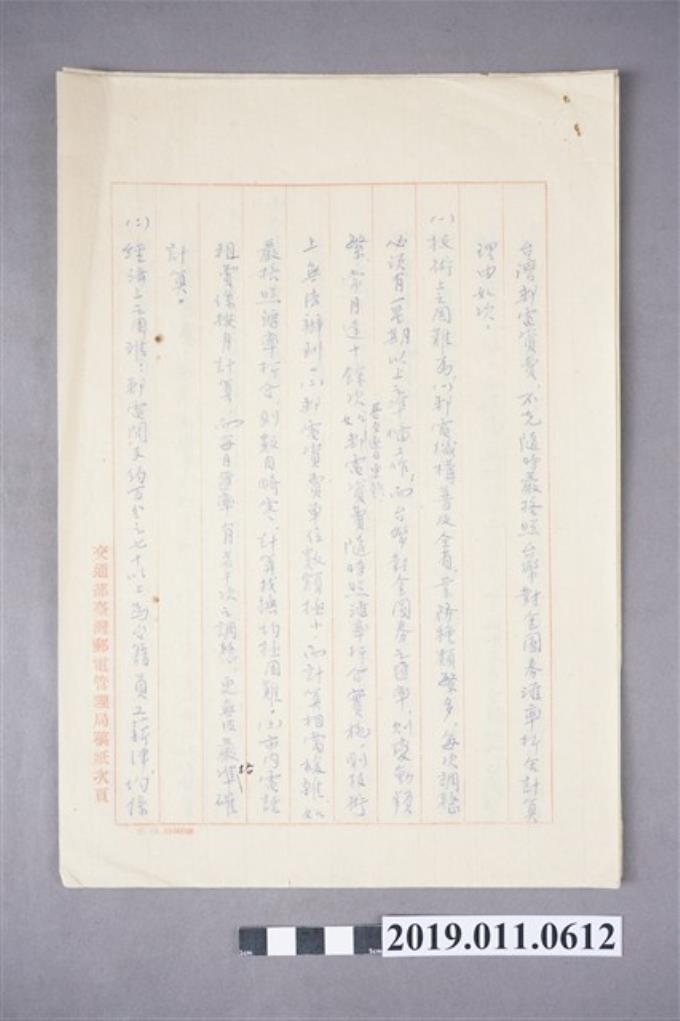 台灣郵電資費、不克隨時嚴格照台幣對金圓券滙率折合計算
理由如次、
(一)技術上之困難為(1)郵電機構普及全省、業務種類繁多、每次調整
必須有一星期以上之準備工作、而台幣對金圓券之滙率、則變動頻
繁、常月達十餘次、如郵電資費隨時照滙率折合實施、則技術
上無法辦到、(2)郵電資費單位數額極小、而計算相當複雜、如
嚴格照滙率折合、則數目畸零、計算找換均極困難。(3)市內電話
租費係按月計算、而每月滙率有若干次之調整、更無法嚴準確
計算。
(二)經濟上之困難：郵電開支約百分之七十以上為台籍員工薪津、均係
交通部臺灣郵電管理局稿紙次頁
2019.011.0612